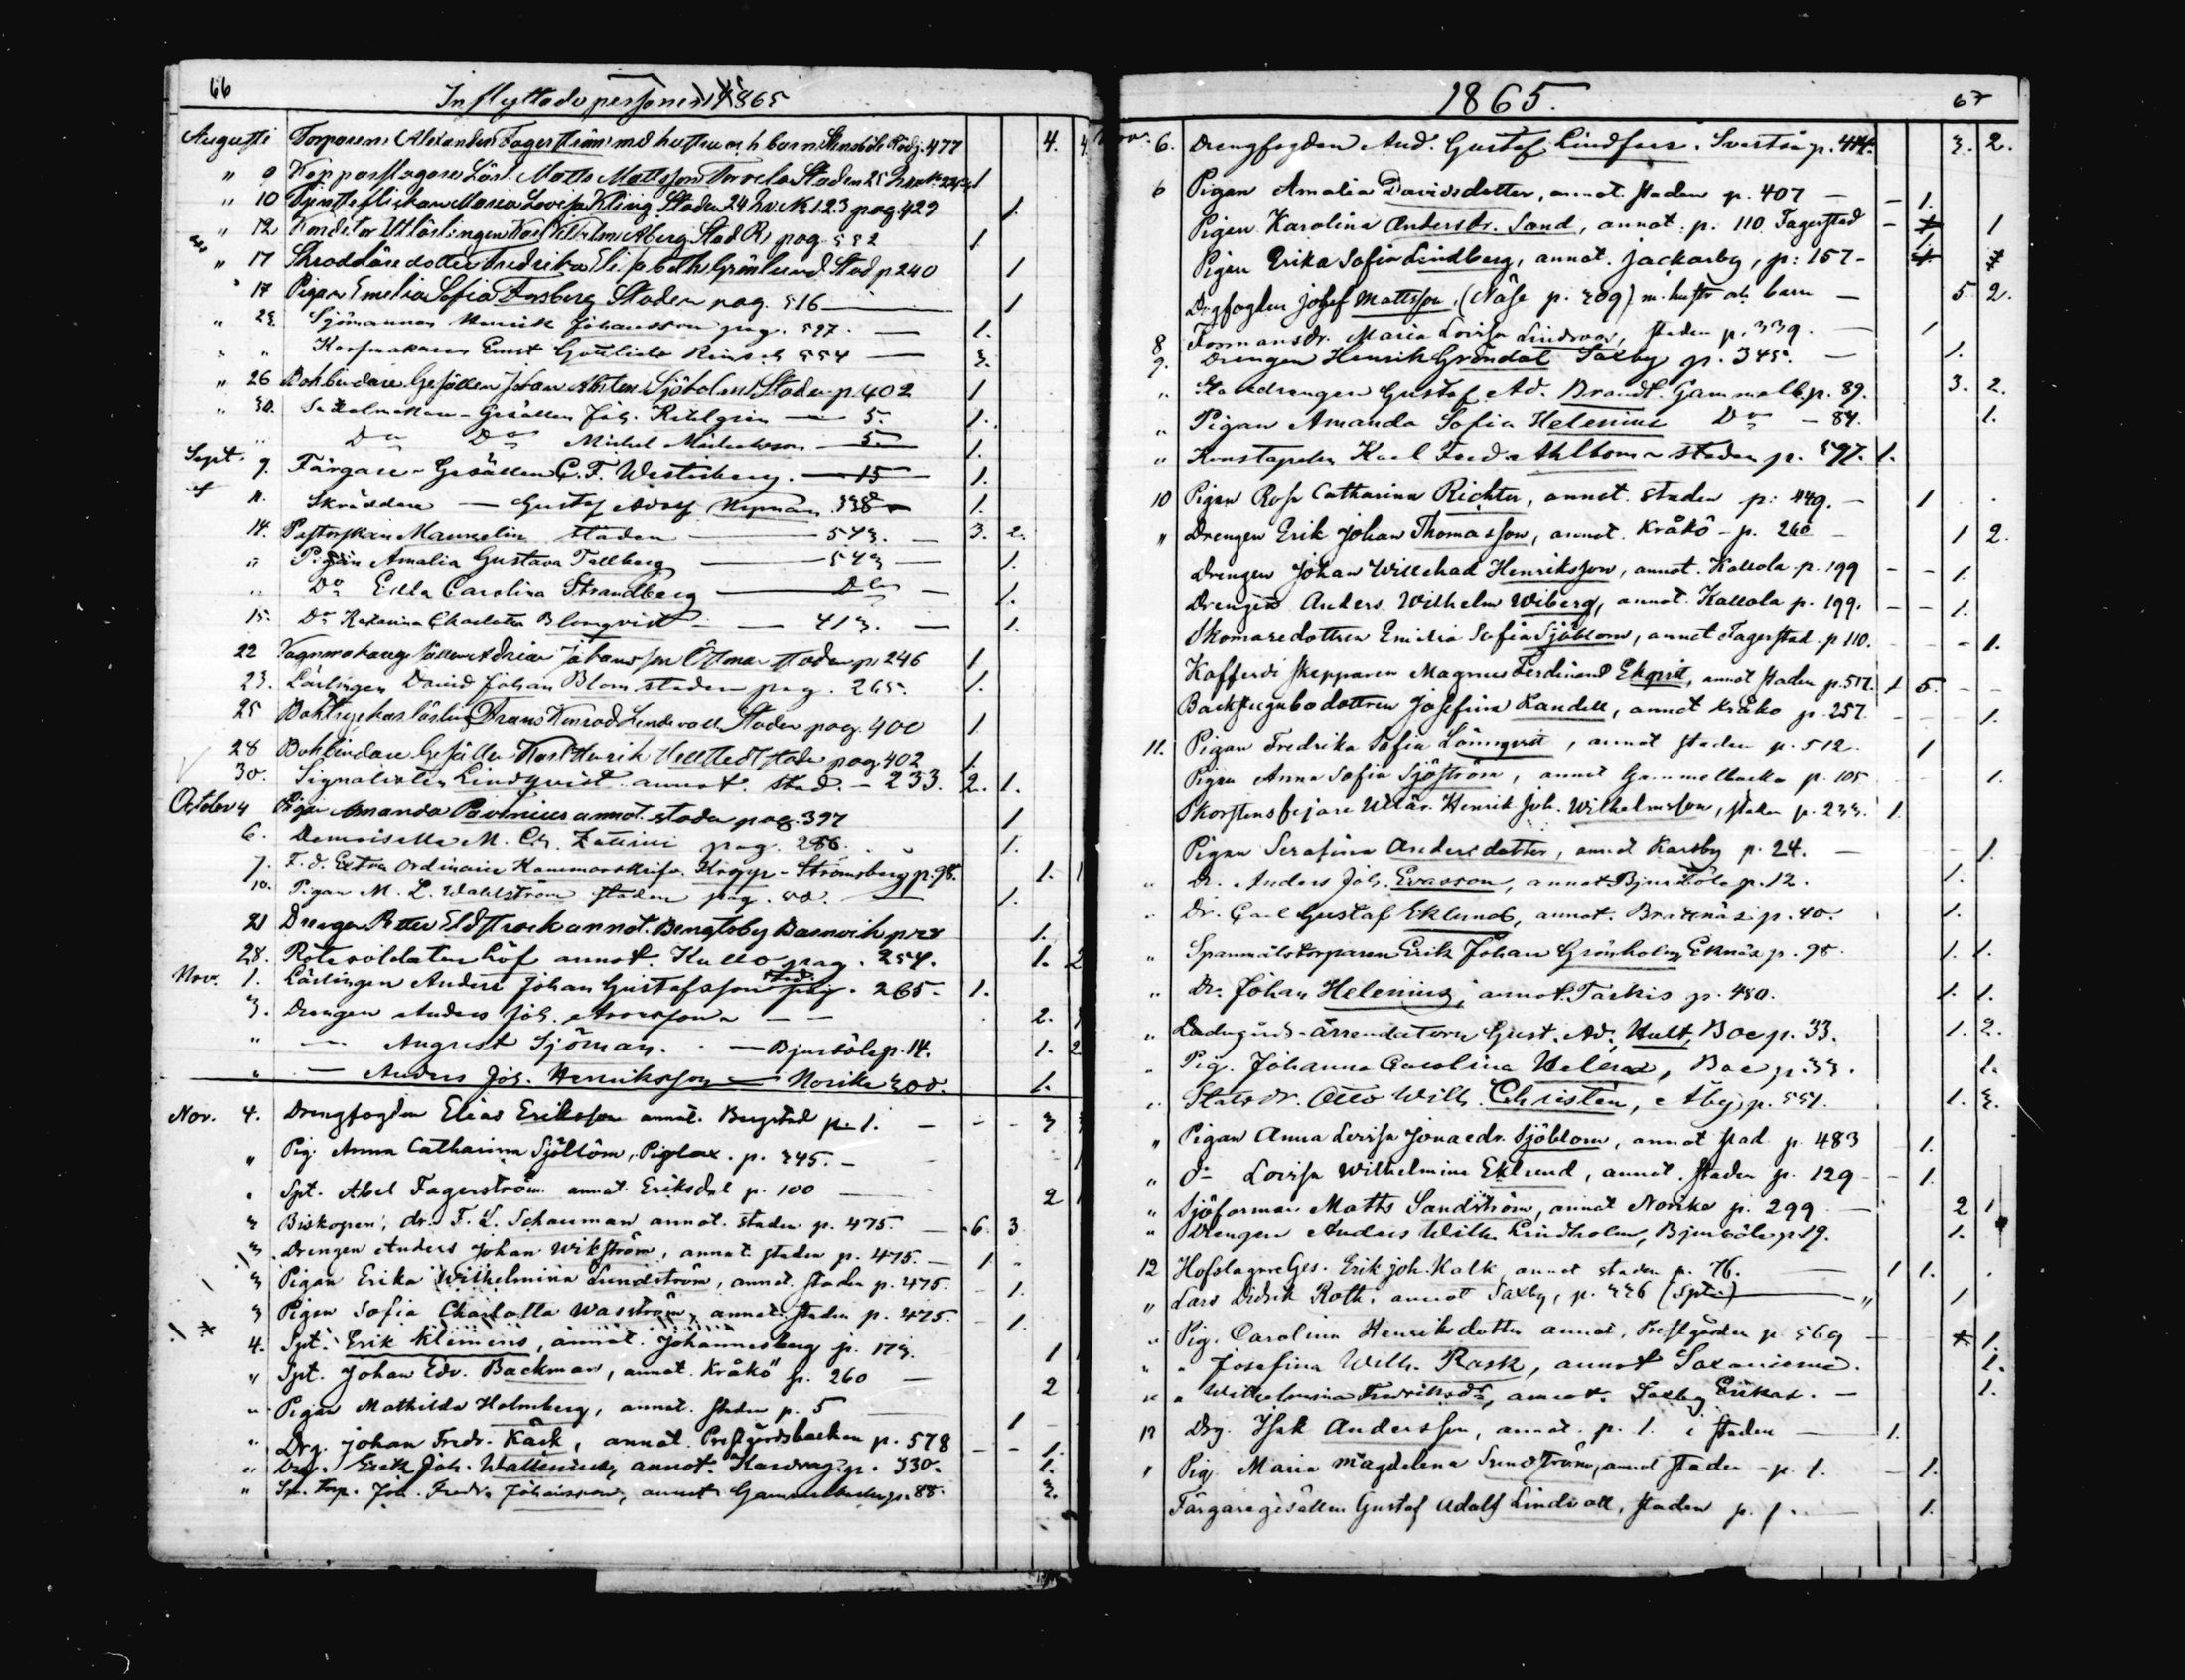 66
Inflyttade personer 1865
Augusti Torparen Alexander Fagerström med hustru och barn Stensböle Rödg. 477 4. 4.
" 9 Kopparslagare Lärl. Matts Mattsson Torvela Staden 25 1
" 10 Tjensteflickan Maria Lovisa Kling Staden 24 hv. N 1.2.3 pag. 429 1.
" 12 Konditor Utlärlingen Karl Vilhelm Åberg Stad pag 552 1
" 17 Skräddare dotter Fredrika Elisabeth Grönlund Stad p 240 1
" 17 Pigan Emelia Sofia Forsberg Staden pag. 516 — 1
" 23 Sjömannen Henrik Johansson pag. 597. — 1.
" " Korfmakaren Ernst Gottlieb 554 — 3.
" 26 Bokbindare Gesällen Johan Sjöholm Staden p. 402 1
" 30. Sadelmakare-Gesällen Joh. — 5. 1.
" Do Do Michel Michelsson — 5. 1.
Sept. 9. Färgare-Gesällen C. F. Westerberg. — 15 — 1.
" 11. Skräddare — Gustaf Adolf Nyman. 338 — 1.
14. Pastorskan Mannelin staden — 543. — 3. 2.
" Pigan Amalia Gustava Tallberg — 543 — 1.
" Do Edla Carolina Strandberg — Do — 1.
15. Do Katarina Charlotta Blomqvist — — 413. — 1.
22 Vagnmakaregesällen Adrian Johansson Östman staden p. 246 1
23. Lärlingen David Johan Blom staden pag. 265. 1.
25 Boktryckarlärling Frans Konrad Lindevall Staden pag. 400 1
28 Bokbindare Gesällen Karl Henrik Hellstedt staden pag 402 1.
30. Signalisten Lindqvist annot. stad. — 233. 2. 1.
October 4 Pigan Amanda Pavenius annot. staden pag. 397 1
6. Demoiselle M. Ch. pag. 286. 1.
7. F. d. Extra Ordinarie Kammarskrifv. - Strömsberg p. 98. 1. 1
10. Pigan M. L. Wahlström staden pag. 1.
21 Drengen Petter annot. Bengtsby 1.
28. Rotesoldaten Löf annot. Kullo pag. 254. 1. 2
Nov. 1. Lärlingen Anders Johan Gustafsson stad. pag. 265. 1.
3. Drengen Anders Joh. — — 2.
" — August Sjöman. — Bjurböle p. 14. 1. 2
" — Anders Joh. Henriksson — Norike 300. 1.
Nov. 4. Drengfogden Elias Eriksson annot. Bergstad p. 1. — - - 3
" Pig. Anna Catharina Sjöblom, Piglax. p. 345. —
" Spt. Abel Fagerström annot. Eriksdal p. 100 — 2
" Biskopen, dr. F. L. Schauman annot. staden p. 475. — 6. 3
" Drengen Anders Johan Wikström, annot. staden p. 475. — 1.
" Pigan Erika Wilhelmina Lundström, annot. staden p. 475. - 1.
" Pigan Sofia Charlotta Wasström, annot. staden p. 475. - 1.
4. Spt. Erik Klimenis, annot. Johannesberg p. 173. 1
" Spt. Johan Edv. Backman, annot. Kråkö p. 260 — 2
" Pigan Mathilda Holmberg, annot. staden p. 5 — 1 -
" Drg. Johan Fredr. Käck, annot. Prestgårdsbacken p. 578 - - 1.
" Drg. Erik Joh. Wallenius, annot. p. 330. 1.
" Sp. torp. Joh. Fredr. Johansson, annot. Gammelbacka p. 88. 3.
1865.
67
Nov. 6. Drengfogden And. Gustaf Lindfors. Svartså p. 414. 3. 2.
6 Pigan Amalia Davidsdotter, annot. staden p. 407 — - 1.
Pigan Karolina Andersdr. Sand, annot. p. 110 Fagerstad - 1
Pigan Erika Sofia Lindberg, annot. Jackarby, p: 157 -
Drgfogden Josef Mattsson, (Näse p. 209) m. hustr. och barn — 5 2.
8 Formansdr. Maria Lovisa Lindroos, staden p. 339. — 1
9. Drengen Henrik Gröndal Saxby p. 345. — 1.
" Statdrengen Gustaf Ad. Brandt. Gammelb. p. 89. 3. 2.
" Pigan Amanda Sofia Helenius Do — 84. 1.
" Konstapeln Karl Fred. Ahlbom staden p. 597. 1.
10 Pigan Rosa Catharina Richter, annot. staden p: 449. — 1
" Drengen Erik Johan Thomasson, annot. Kråkö - p. 260 — 1 2.
Drengen Johan Willehad Henriksson, annot. Kallola p. 199 - - 1.
Drengen Anders Wilhelm Wiberg, annot. Kallola p. 199. - - 1.
Skomaredottren Emilia Sofia Sjöblom, annot Fagerstad p 110. - - 1.
Kofferdi skepparen Magnus Ferdinand Ekqvist, annot staden p. 517. 1 5. - -
Backstugubodottren Josefina Randell, annot Kråkö p. 257. - - 1.
11. Pigan Fredrika Sofia Lönnqvist, annot staden p. 512. 1
Pigan Anna Sofia Sjöström, annot Gammelbacka p. 105 1.
Skorstensfejare Utlär. Henrik Joh. Wilhelmsson, staden p. 233. 1.
Pigan Serafina Andersdotter, annot Karsby p. 24. — 1.
" Dr. Anders Joh. Evasson, annot Bjurböle p. 12. 1.
" Dr. Carl Gustaf Eklund, annot. Braxnäs p. 40. 1.
" Spannmålstorparen Erik Johan Grönholm, Eknäs p. 98. 1. 1.
" Dr. Johan Helenius, annot. Tarkis p. 480. 1. 1.
" Ladugårds-arrendatorn Gust. Ad. Hult, Boe p. 33. 1. 2.
" Pig. Johanna Carolina Helena, Boe p. 33. 1.
" Statsdr. Otto Wilh. Christén, Åby p. 551. 1. 3.
" Pigan Anna Lovisa Jonaedr. Sjöblom, annot stad p. 483 1.
" Do Lovisa Wilhelmina Eklund, annot. staden p. 129 - - 1.
" Sjöforman Matts Sandström, annot Norike p. 299 — 2 1
" Drengen Anders Wilh. Lindholm, Bjurböle p 19. 1.
12 Hofslagare Ges. Erik Joh. Kalk, annot staden p. 76. — 1 1.
" Lars Didrik Roth, annot Saxby, p. 336 (Spt.) — " 1
" Pig. Carolina Henriksdotter annot, Prestgården p 569 — 1.
" " Josefina Wilh. Rask, annot Saxaniemi. 1.
" " Wilhelmina Fredriksdr, annot. Saxby Erikas. — 1.
13 Drg. Isak Andersson, annot. p. 1. i staden — 1.
" Pig. Maria Magdalena Sundström, annot staden - p. 1. — 1.
Färgaregesällen Gustaf Adolf Lindvall, staden p. 1. — 1.